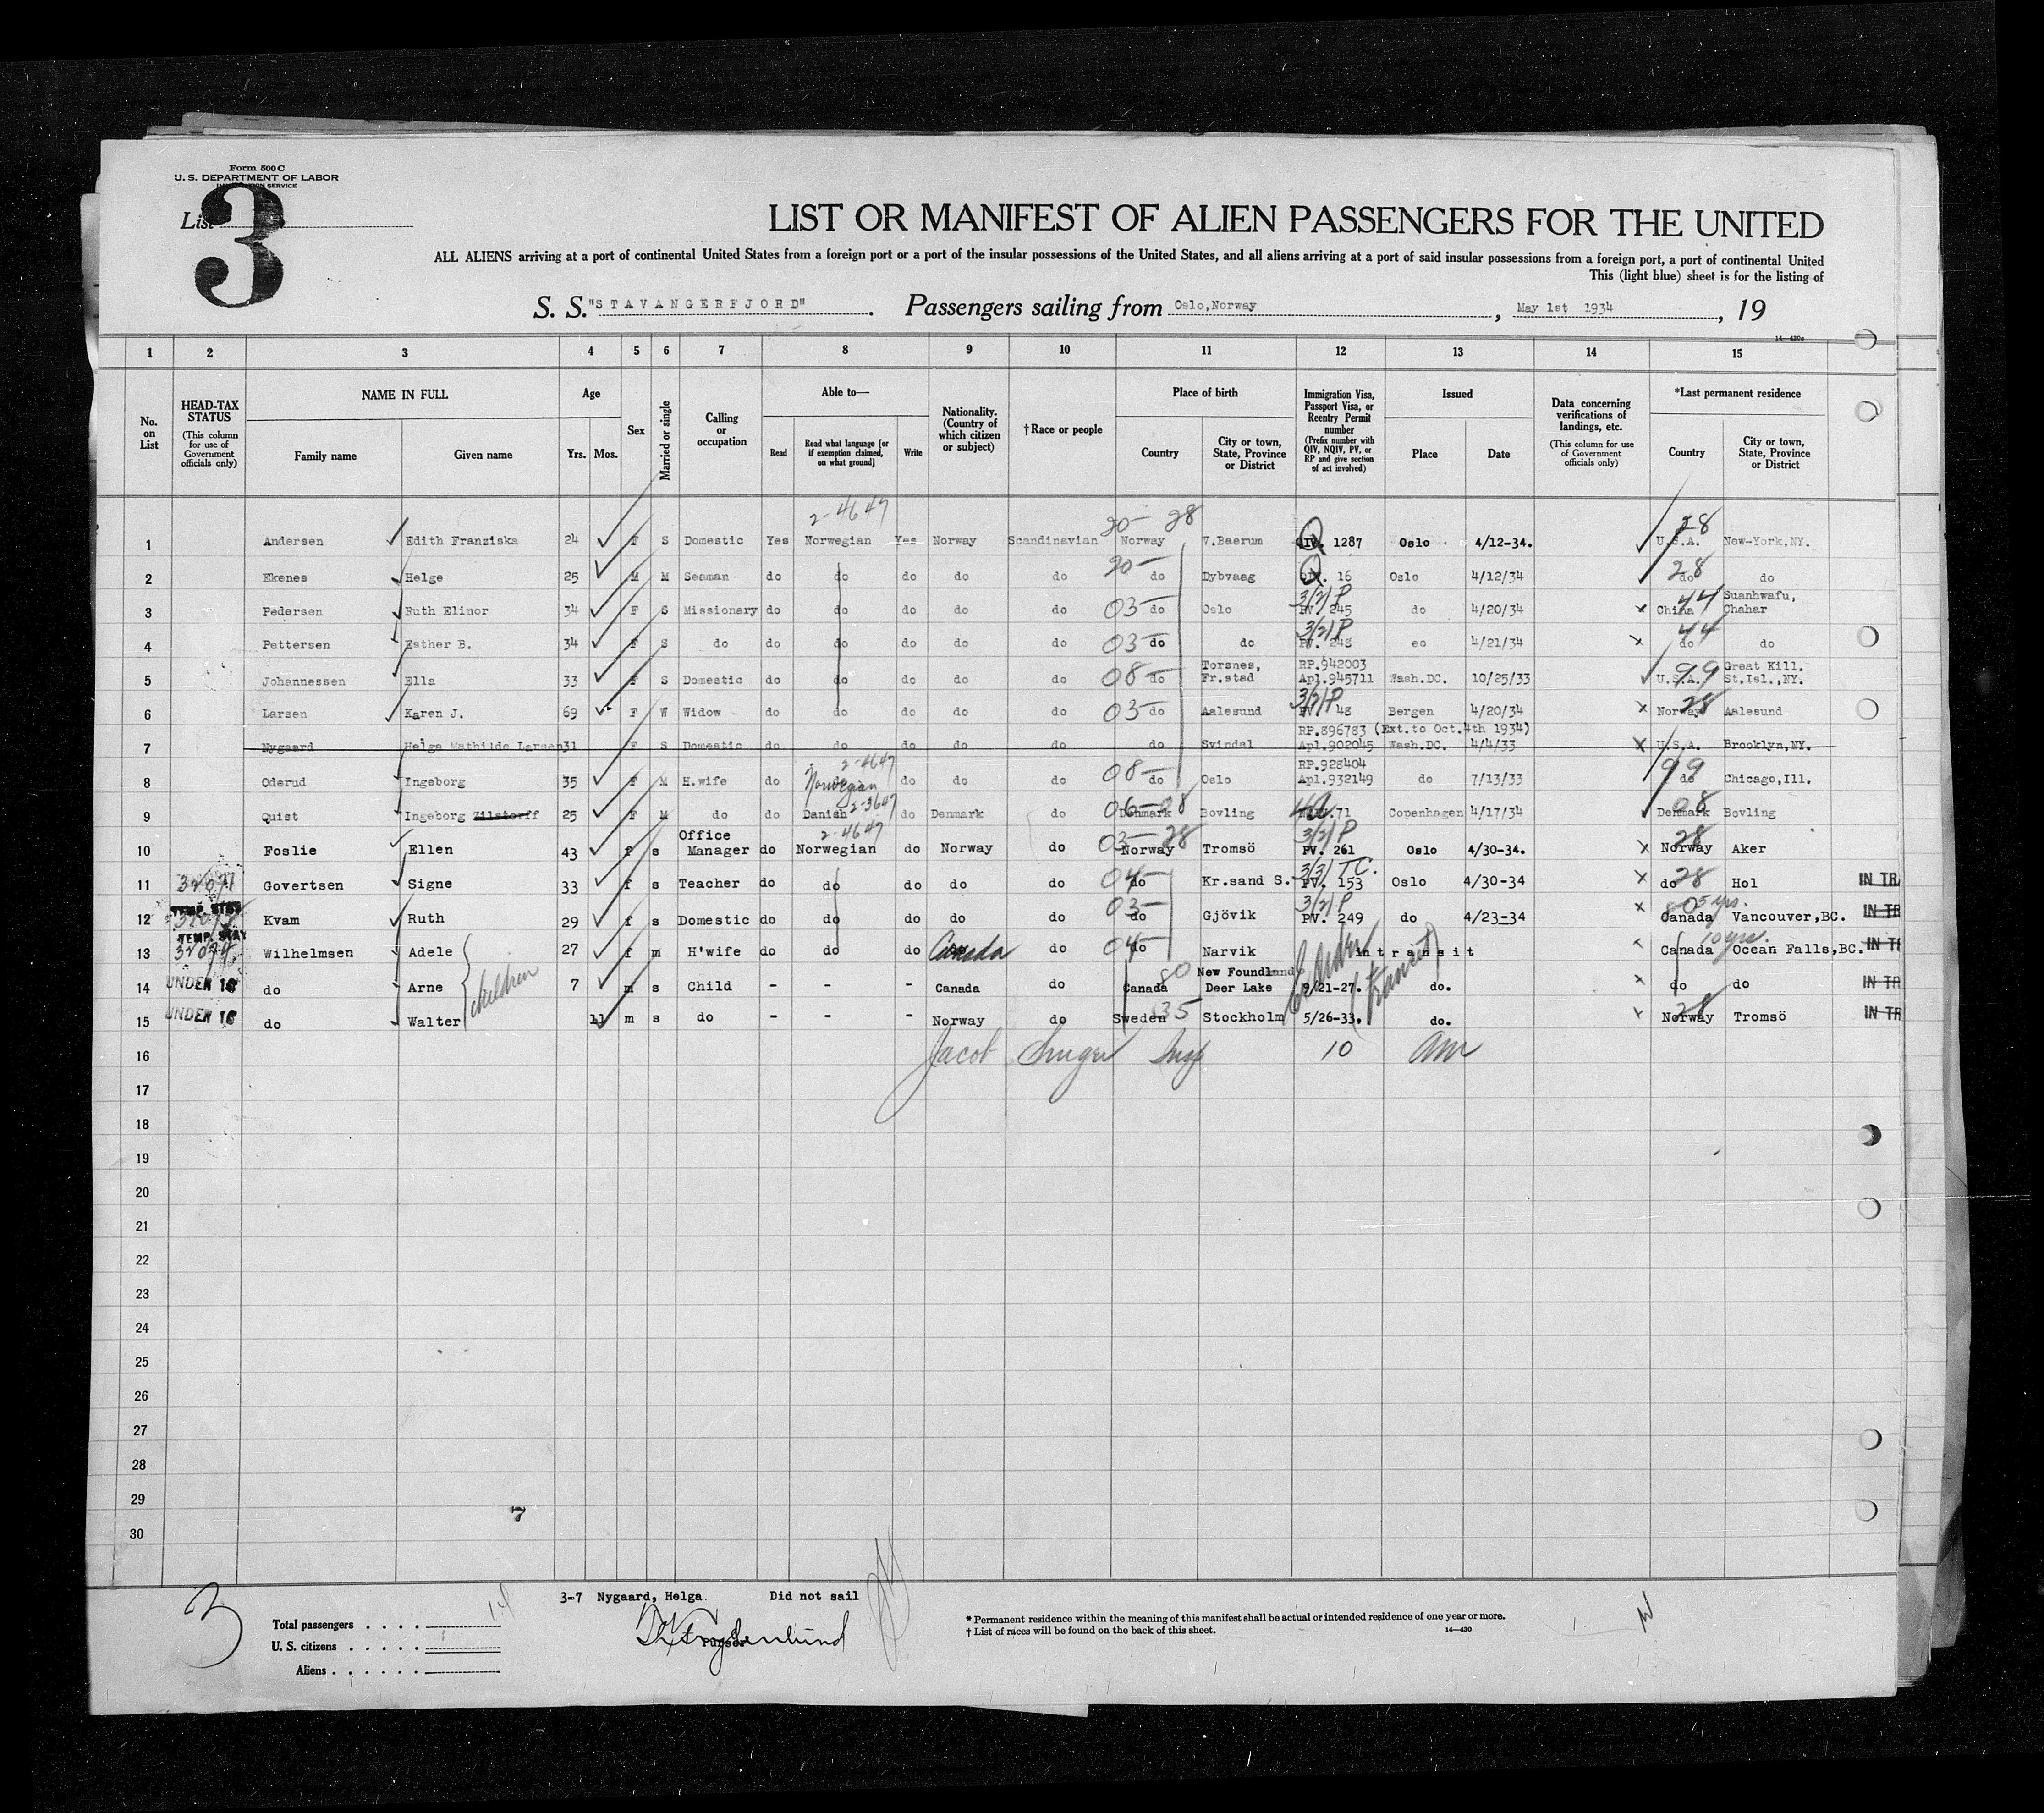 Form 500 C
U. S. DEPARTMENT OF LABOR
IMMIGRATION SERVICE
List 3
LIST OR MANIFEST OF ALIEN PASSENGERS FOR THE UNITED
ALL ALIENS arriving at a port of continental United States from a foreign port or a port of the insular possessions of the United States, and all aliens arriving at a port of said insular possessions from a foreign port, a port of continental United
This (light blue) sheet is for the listing of
S. S. "STAVANGERFJORD" . Passengers sailing from Oslo,Norway , May 1st 1934 , 19
14—430a
1 2 3 4 5 6 7 8 9 10 11 12 13 14 15
No. on List
HEAD-TAX STATUS (This column for use of Government officials only)
NAME IN FULL Family name Given name
Age Yrs. Mos.
Sex
Married or single
Calling or occupation
Able to— Read Read what language [or if exemption claimed, on what ground] Write
Nationality. (Country of which citizen or subject)
†Race or people
Place of birth Country City or town, State, Province or District
Immigration Visa, Passport Visa, or Reentry Permit number (Prefix number with QIV, NQIV, PV, or RP and give section of act involved)
Issued Place Date
Data concerning verifications of landings, etc. (This column for use of Government officials only)
*Last permanent residence Country City or town, State, Province or District
2-4647 20- 28 28
1 Andersen Edith Franziska 24 F S Domestic Yes Norwegian Yes Norway Scandinavian Norway V.Baerum QIV. 1287 Oslo 4/12-34. U.S.A. New-York,NY.
2 Ekenes Helge 25 M M Seaman do do do do do 20- do Dybvaag 16 Oslo 4/12/34 28 do do
3 Pedersen Ruth Elinor 34 F S Missionary do do do do do 03- do Oslo 3/2/P PV. 245 do 4/20/34 China 44 Suanhwafu, Chahar
4 Pettersen Esther B. 34 F S do do do do do do 03- do do 3/2/P PV. 248 eo 4/21/34 44 do do
5 Johannessen Ella 33 F S Domestic do do do do do 08- do Torsnes, Fr.stad RP.942003 Apl.945711 Wash.DC. 10/25/33 U.S.A. 99 Great Kill. St.Isl.,NY.
6 Larsen Karen J. 69 F W Widow do do do do do 03- do Aalesund 3/2/P PV. 48 Bergen 4/20/34 Norway 28 Aalesund
7 Nygaard Helga Mathilde Larsen 31 F S Domestic do do do do do do Svindal RP.896783 (Ext.to Oct.4th 1934) Apl.902045 Wash.DC. 4/4/33 U.S.A. Brooklyn,NY.
8 Oderud Ingeborg 35 F M H.wife do 2-4647 Norwegian do do do 08- do Oslo RP.928404 Apl.932149 do 7/13/33 99 do Chicago,Ill.
9 Quist Ingeborg Zilstorff 25 F M do do Danish 2-3647 do Denmark do 06-08 Denmark Bovling 71 Copenhagen 4/17/34 Denmark 08 Bovling
10 Foslie Ellen 43 f s Office Manager do 2-4647 Norwegian do Norway do 03- 28 Norway Tromsö 3/2/P PV. 261 Oslo 4/30-34. 28 Norway Aker
11 Govertsen Signe 33 f s Teacher do do do do do 04- do Kr.sand S. 3/3/TC. PV. 153 Oslo 4/30-34 do 28 Hol IN TRA
TEMP. STAY
12 Kvam Ruth 29 f s Domestic do do do do do 03- do Gjövik 3/2/P PV. 249 do 4/23-34 5 yrs. Canada Vancouver,BC. IN TR
TEMP. STAY
13 Wilhelmsen Adele 27 f m H'wife do do do Canada do 04- do Narvik in transit 10 yrs. Canada Ocean Falls,BC. IN TR
children
UNDER 16
14 do Arne 7 m s Child - - - Canada do 80 Canada New Foundland Deer Lake 9/21-27. do. do do IN TR
UNDER 16
15 do Walter 11 m s do - - - Norway do Sweden 35 Stockholm 5/26-33. do. 28 Norway Tromsö IN TR
16 Jacob Insp 10 am
17
18
19
20
21
22
23
24
25
26
27
28
29
7
30
3-7 Nygaard, Helga Did not sail
3
Total passengers 14
U. S. citizens
Aliens
Purser
* Permanent residence within the meaning of this manifest shall be actual or intended residence of one year or more.
† List of races will be found on the back of this sheet.
14—430